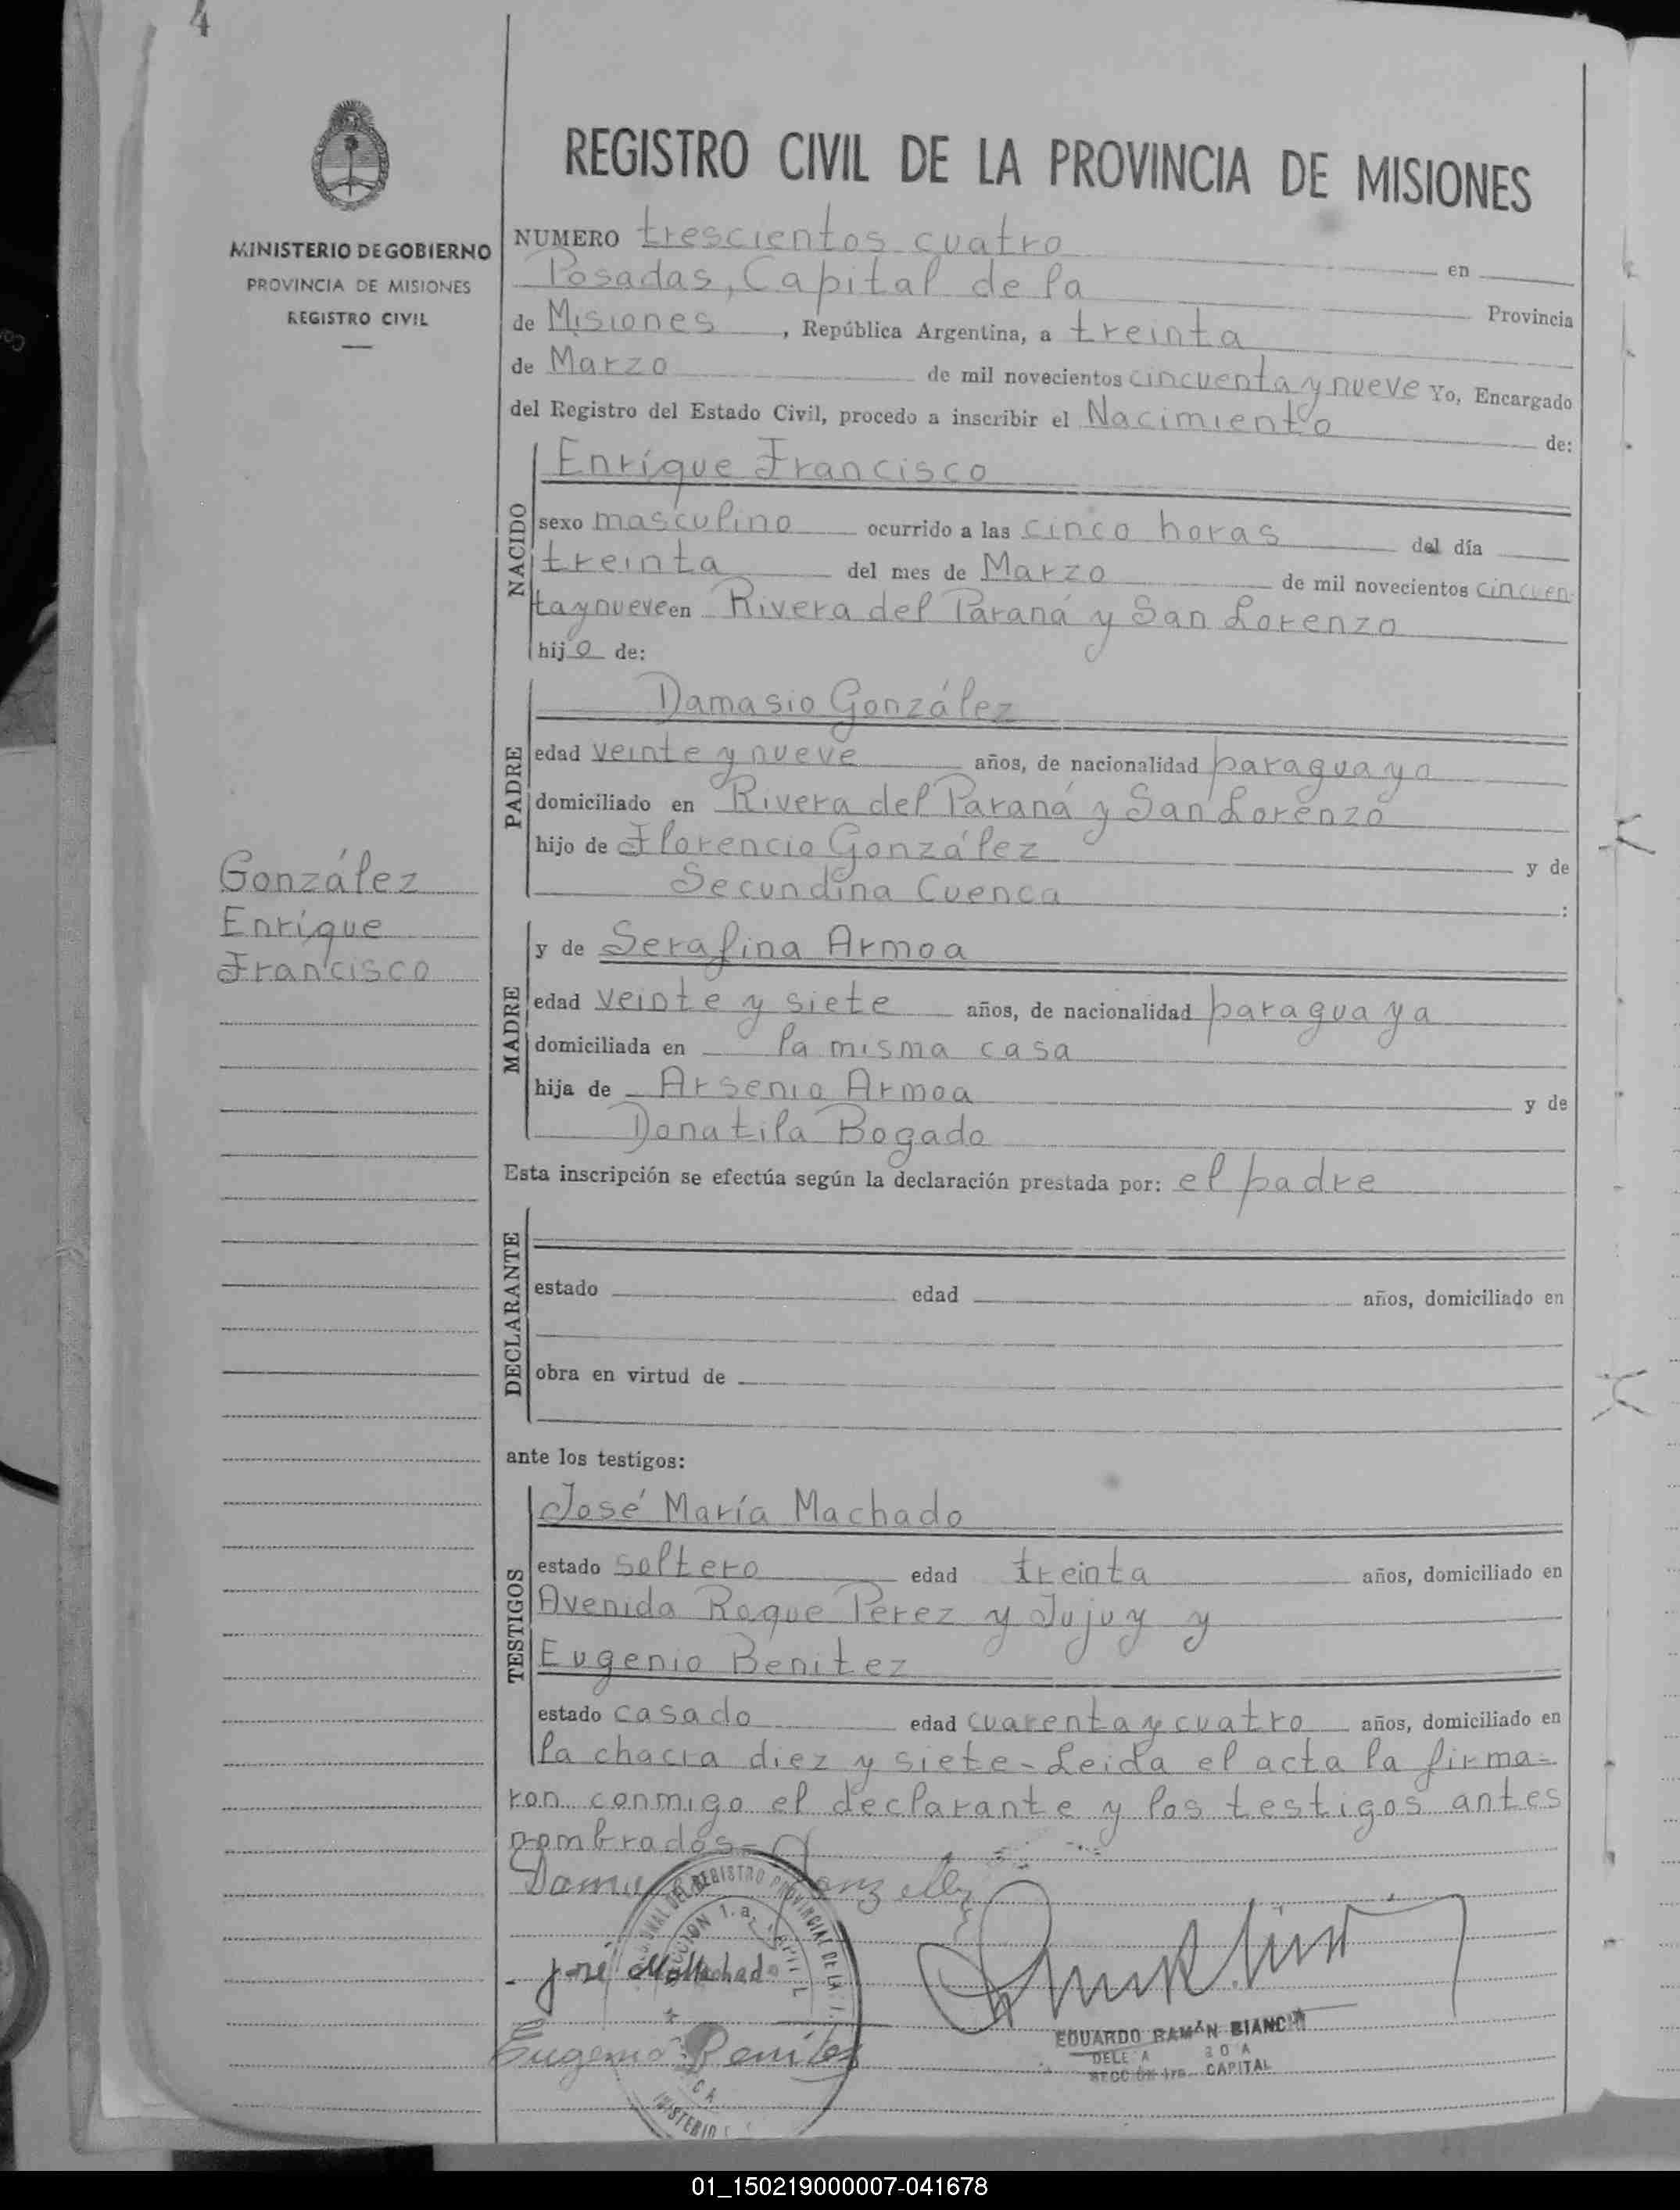 4
MINISTERIO DE GOBIERNO
PROVINCIA DE MISIONES
REGISTRO CIVIL
González
Enríque
Francisco
REGISTRO CIVIL DE LA PROVINCIA DE MISIONES
NUMERO trescientos cuatro en
Posadas, Capital de la Provincia
de Misiones, República Argentina, a treinta
de Marzo de mil novecientos cincuenta y nueve Yo, Encargado
del Registro del Estado Civil, procedo a inscribir el Nacimiento de:
NACIDO
Enríque Francisco
sexo masculino ocurrido a las cinco horas del día
treinta del mes de Marzo de mil novecientos cincuen
ta y nueve en Rivera del Paraná y San Lorenzo
hijo de:
PADRE
Damasio González
edad veinte y nueve años, de nacionalidad paraguayo
domiciliado en Rivera del Paraná y San Lorenzo
hijo de Florencio González y de
Secundina Cuenca :
MADRE
y de Serafina Armoa
edad veinte y siete años, de nacionalidad paraguaya
domiciliada en la misma casa
hija de Arsenio Armoa y de
Donatila Bogado
Esta inscripción se efectúa según la declaración prestada por: el padre
DECLARANTE
estado edad años, domiciliado en
obra en virtud de
ante los testigos:
TESTIGOS
José María Machado
estado soltero edad treinta años, domiciliado en
Avenida Roque Perez y Jujuy y
Eugenio Benitez
estado casado edad cuarenta y cuatro años, domiciliado en
la chacra diez y siete - Leida el acta la firma=
ron conmigo el declarante y los testigos antes
nombrados=
José M Machado
Eugenio Benitez
EDUARDO RAMÓN BIANCHI
CAPITAL
01_150219000007-041678